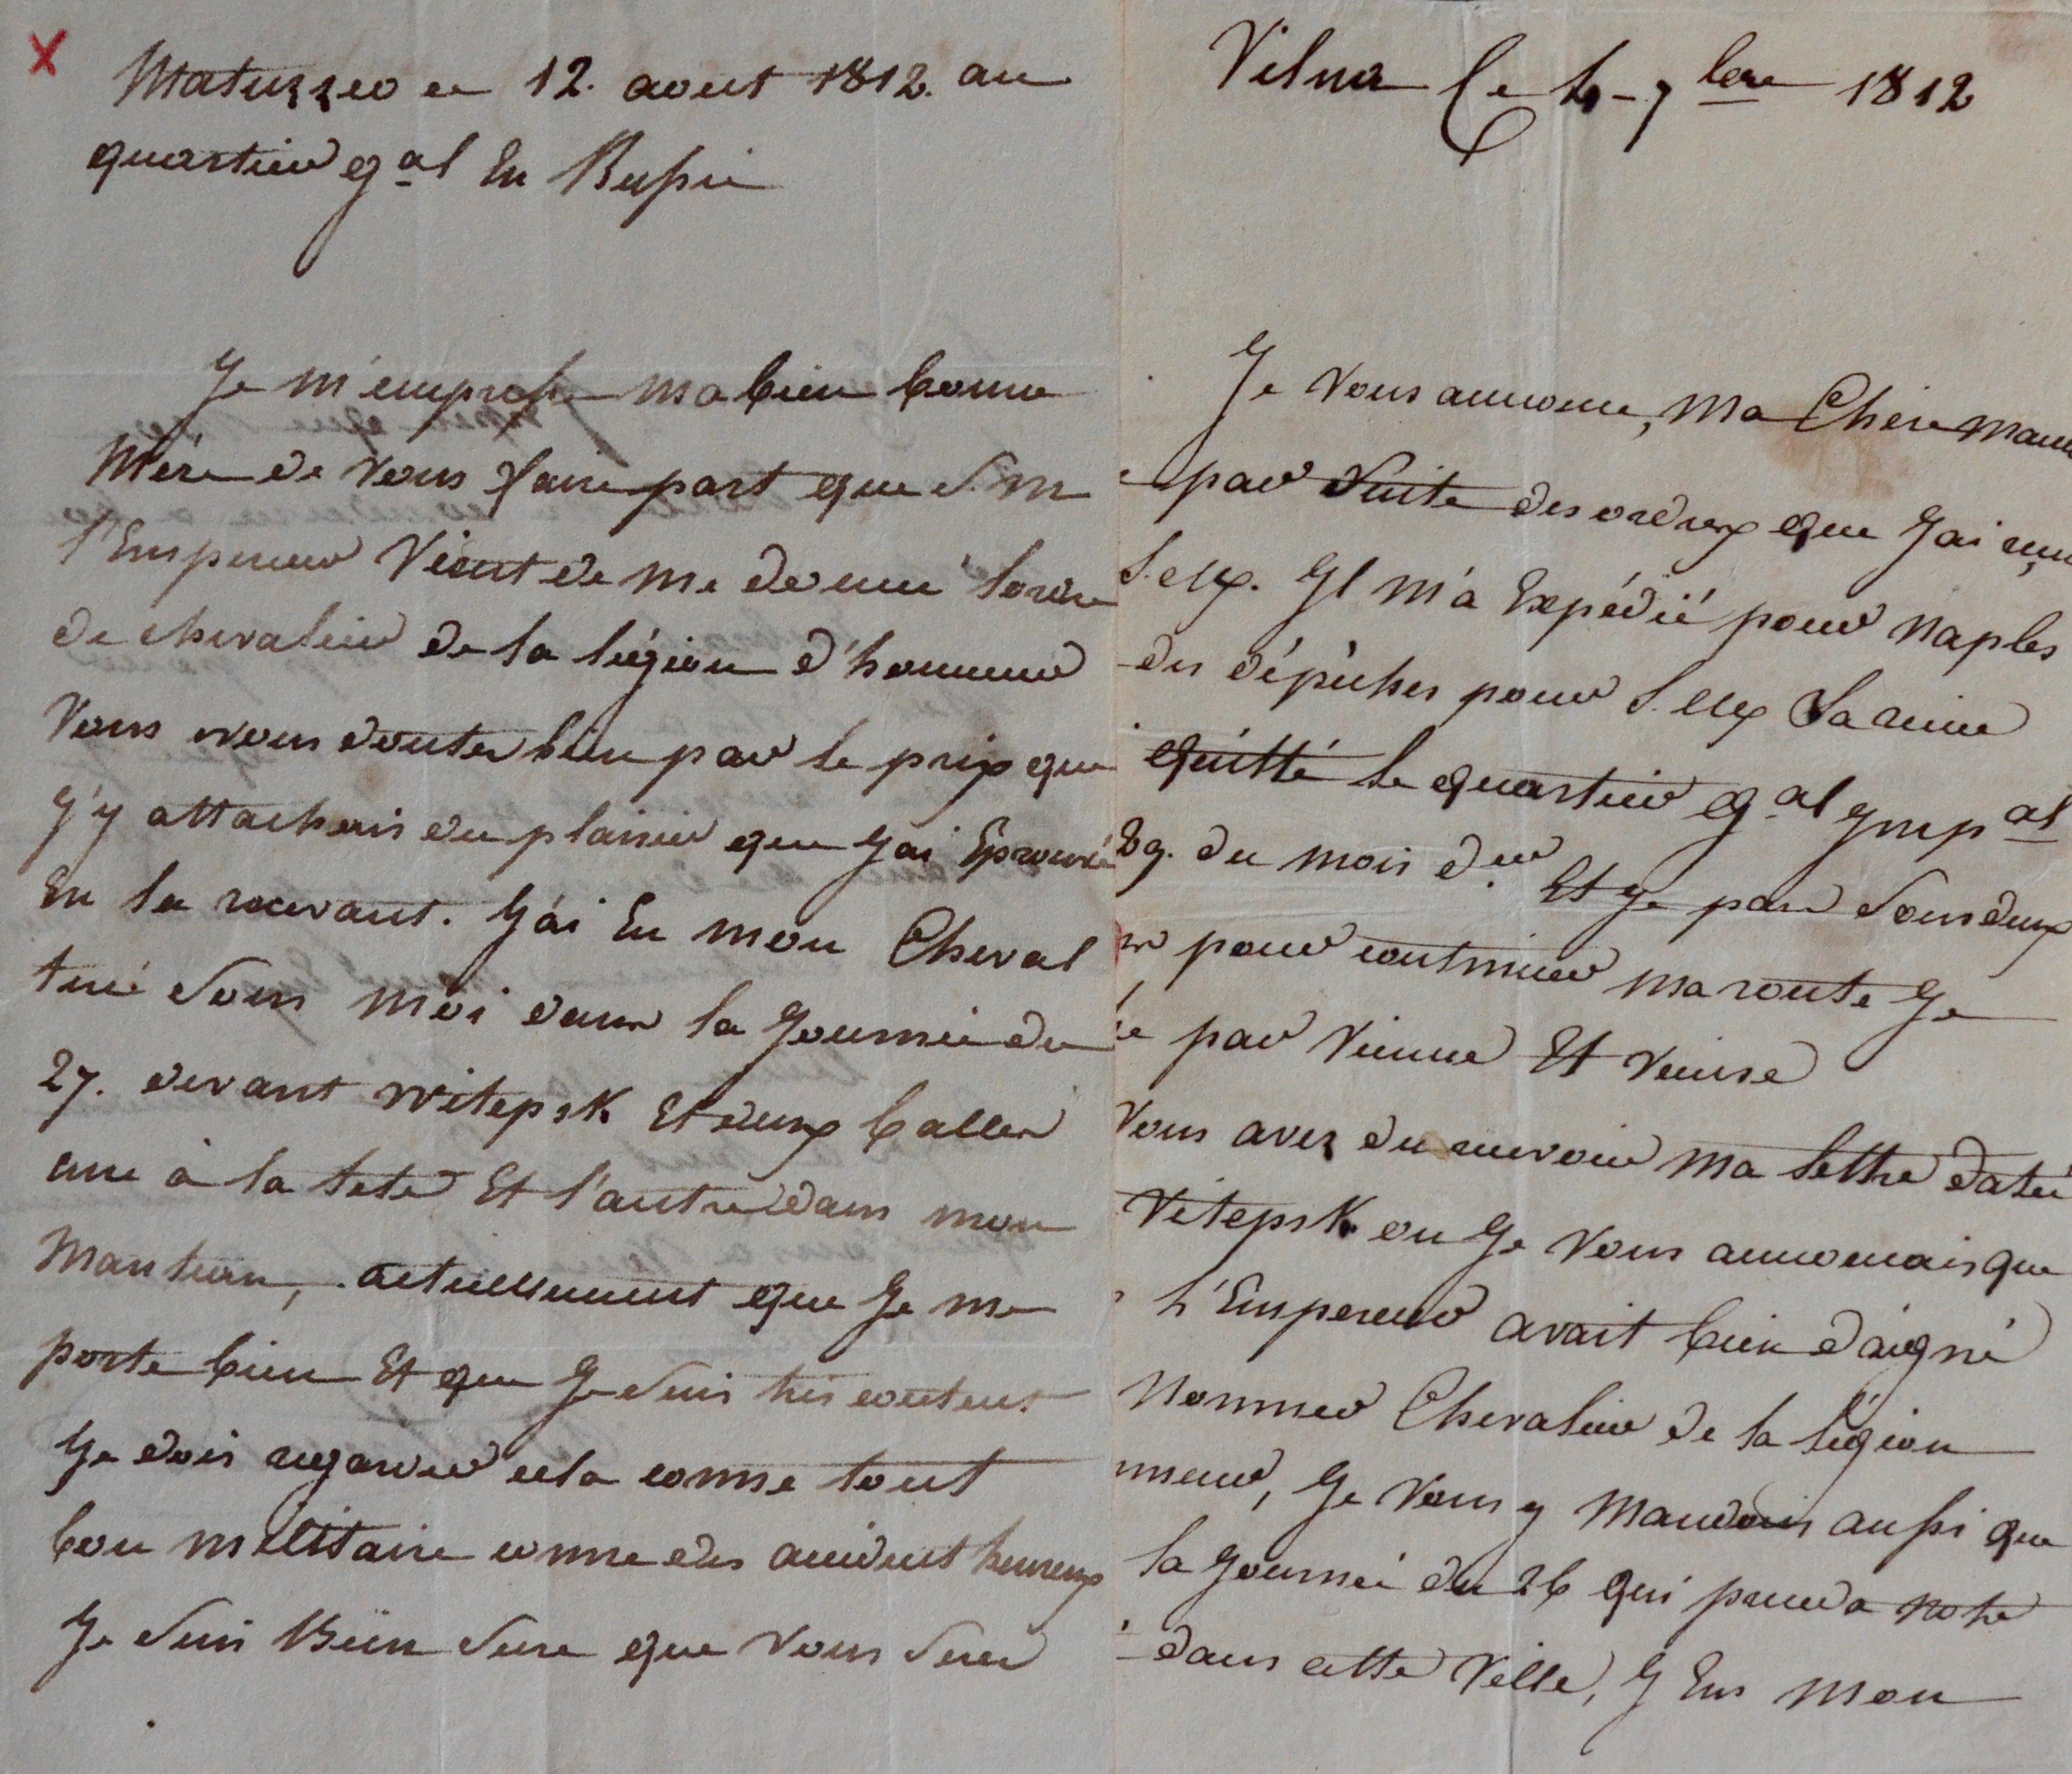 Matuzzeo ce 12. aout 1812. au
quartier gal En Russie
Je m'empresse ma bien bonne
Mére de vous faire part que S. M
l'Empereur Vient de me donner lordre
de chevalier de la légion d'honneur
Vous vous douter bien par le prix que
J'y attachais du plaisir que J'ai Eprouvé
En la recevant. J'ai Eu mon Cheval
tué sous moi dans la Journée du
27. devant witepsk Et deux balles
une à la tete Et l'autre dans mon
Manteau, actuellement que Je me
porte bien Et que Je suis très content
Je dois regarder cela comme tout
bon militaire comme des accident heureux
Je suis Bien sure que vous serez
Vilna Ce 4 - 7bre 1812
Je vous annonce, Ma Chere Mam
par suite des ordres que J'ai reçu
S. M. Il m'a Expédié pour Naples
des dépêches pour S. M La reine
quitté le quartier gal Impal
29. du mois der Et Je pars sous deux
pour continuer ma route Je
par Vienne Et Venise
Vous avez du recevoir ma lettre datée
Vitepsk ou Je vous annonçais que
L'Empereur avait bien daigné
Nommer Chevalier de la légion
nneur, Je vous y Mandais aussi que
la Journée du 26 qui preceda notre
dans cette Ville, J'Eus mon